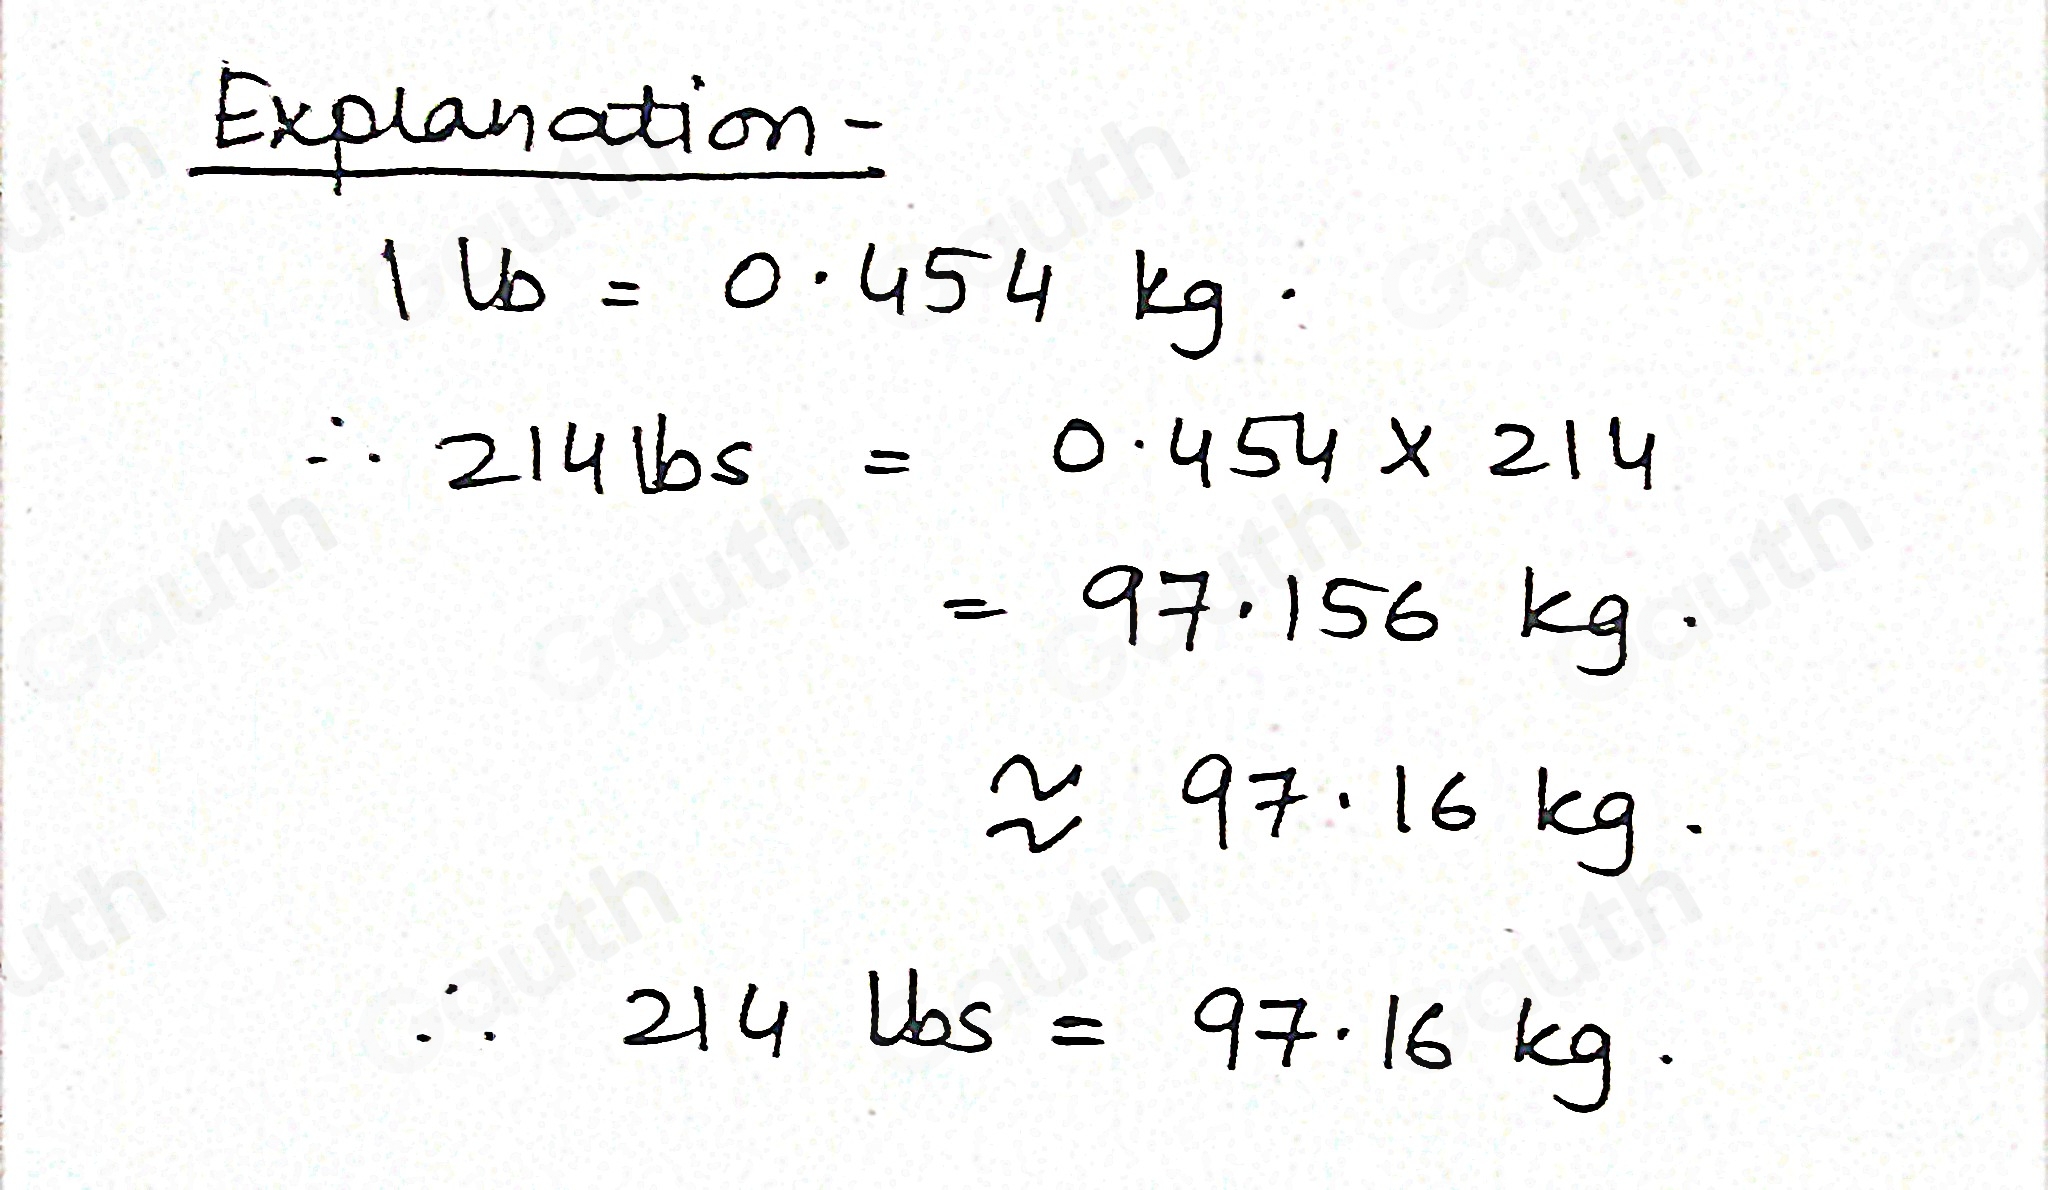 Explanation -
1 lb = 0.454 kg.
∴ 214 lbs = 0.454 × 214
= 97.156 kg.
≈ 97.16 kg.
∴ 214 lbs = 97.16 kg.